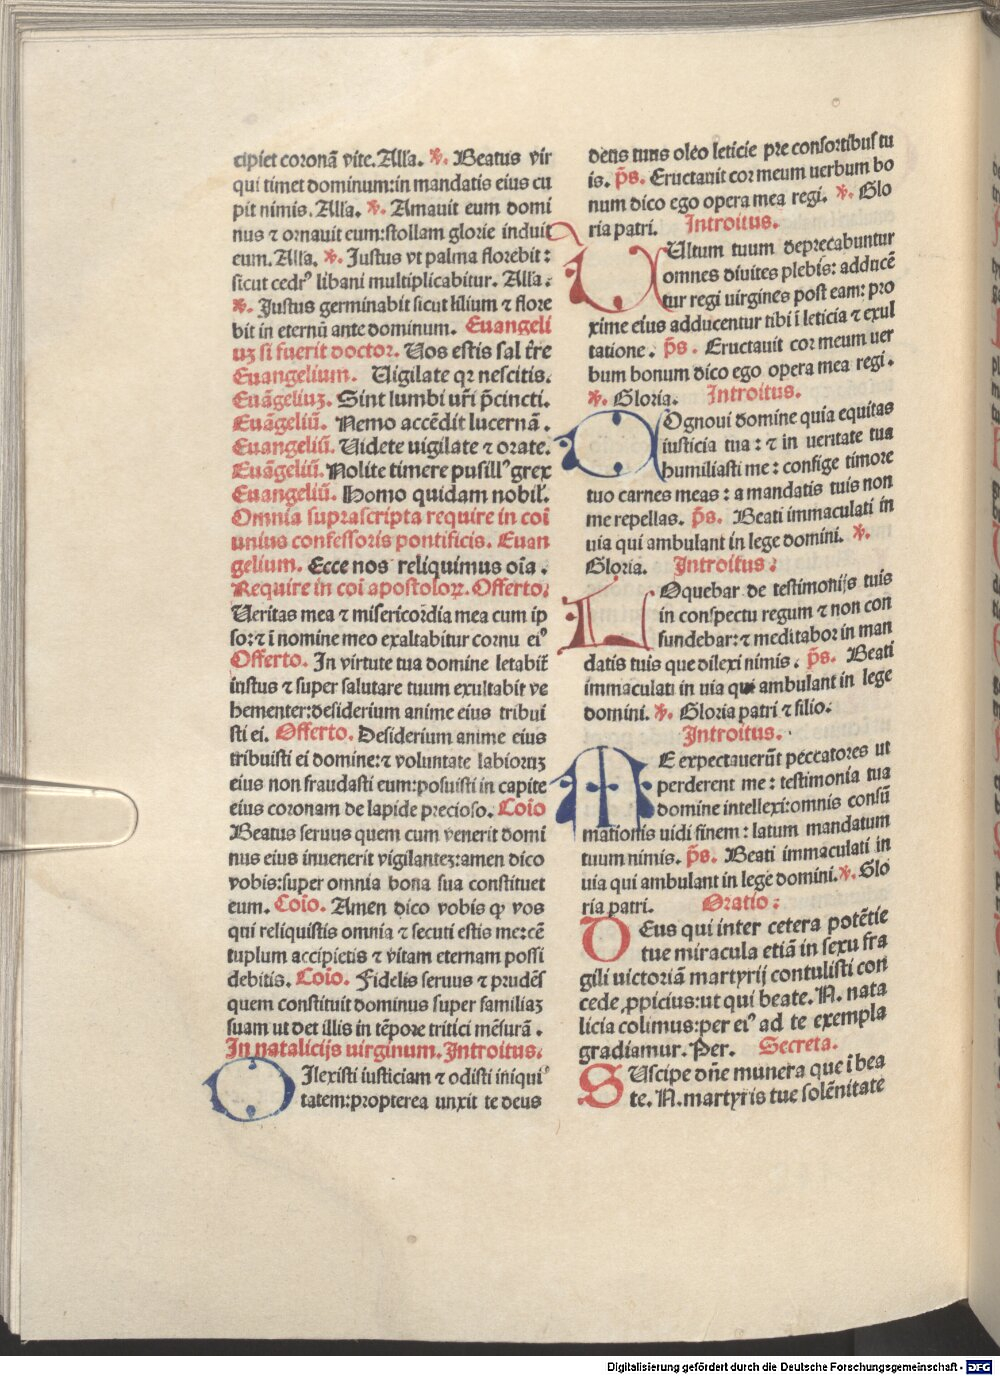 cipiet coronā vite. Alľa. ℣. Beatus vir
qui timet dominum:in mandatis eius cu
pit nimis. Alľa. ℣. Amauit eum domi
nus ⁊ ornauit eum:stollam glorie induit
eum. Alľa. ℣. Justus vt palma florebit:
sicut cedrꝰ libani multiplicabitur. Alľa.
℣. Justus germinabit sicut lilium ⁊ flore
bit in eternū ante dominum. Euangeli
uꝫ si fuerit doctor. Uos estis sal tr̄re
Euangelium. Uigilate qꝛ nescitis.
Euāgeliuꝫ. Sint lumbi vr̄i p̄cincti.
Euāgeliū. Nemo accēdit lucernā.
Euangeliū. Uidete uigilate ⁊ orate.
Euāgeliū. Nolite timere pusillꝰ grex
Euangeliū. Homo quidam nobil̄.
Omnia suprascripta require in coī
unius confessoris pontificis. Euan
gelium. Ecce nos reliquimus oīa.
Require in coī apostoloꝝ. Offerto.
Ueritas mea ⁊ misericordia mea cum ip
so:⁊ ī nomine meo exaltabitur cornu eiꝰ
Offerto. In virtute tua domine letabit̄
iustus ⁊ super salutare tuum exultabit ve
hementer:desiderium anime eius tribui
sti ei. Offerto. Desiderium anime eius
tribuisti ei domine:⁊ voluntate labioruꝫ
eius non fraudasti eum:posuisti in capite
eius coronam de lapide precioso. Coīo
Beatus seruus quem cum venerit domi
nus eius inuenerit vigilanteꝫ:amen dico
vobis:super omnia bona sua constituet
eum. Coīo. Amen dico vobis ꝙ vos
qui reliquistis omnia ⁊ secuti estis me:cē
tuplum accipietis ⁊ vitam eternam possi
debitis. Coīo. Fidelis seruus ⁊ prudēs
quem constituit dominus super familiaꝫ
suam ut det illis in tēpore tritici mēsurā.
In natalicijs uirginum. Introitus.
DIlexisti iusticiam ⁊ odisti iniquiꝰ
tatem:propterea unxit te deus
deus tuus oleo leticie pre consortibus tu
is. p̄s. Eructauit cor meum uerbum bo
num dico ego opera mea regi. ℣. Glo
ria patri. Introitus.
UUltum tuum deprecabuntur
omnes diuites plebis: adducē
tur regi uirgines post eam: pro
xime eius adducentur tibi ī leticia ⁊ exul
tatione. p̄s. Eructauit cor meum uer
bum bonum dico ego opera mea regi.
℣. Gloria. Introitus.
COgnoui domine quia equitas
iusticia tua: ⁊ in ueritate tua
humiliasti me: confige timore
tuo carnes meas: a mandatis tuis non
me repellas. p̄s. Beati immaculati in
uia qui ambulant in lege domini. ℣.
Gloria. Introitus:
LOquebar de testimonijs tuis
in conspectu regum ⁊ non con
fundebar:⁊ meditabor in man
datis tuis que dilexi nimis. p̄s. Beati
immaculati in uia qui ambulant in lege
domini. ℣. Gloria patri ⁊ filio.
Introitus.
ME expectauerūt peccatores ut
perderent me: testimonia tua
domine intellexi:omnis consū
mationis uidi finem: latum mandatum
tuum nimis. p̄s. Beati immaculati in
uia qui ambulant in lege domini. ℣. Glo
ria patri. Oratio:
DEus qui inter cetera potētie
tue miracula etiā in sexu fra
gili uictoriā martyrij contulisti con
cede ꝓpicius:ut qui beate. N. nata
licia colimus:per eiꝰ ad te exempla
gradiamur. Per. Secreta.
SUscipe dn̄e munera que ī bea
te. N. martyris tue solēnitate
Digitalisierung gefördert durch die Deutsche Forschungsgemeinschaft - DFG